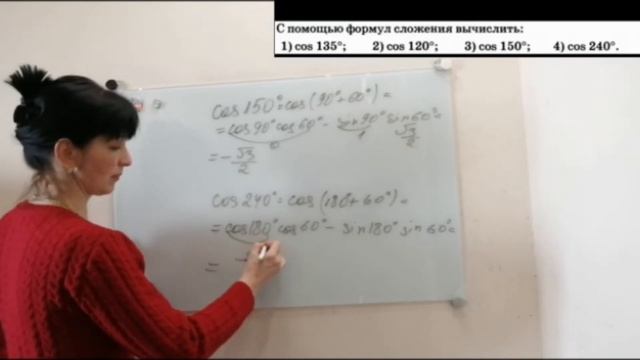 С помощью формул сложения вычислить:
1) cos 135°; 2) cos 120°; 3) cos 150°; 4) cos 240°.
cos 150° = cos (90° + 60°) =
= cos 90° cos 60° - sin 90° sin 60° =
0 1 √3/2
= - √3/2
cos 240° = cos (180° + 60°) =
= cos 180° cos 60° - sin 180° sin 60° =
= -